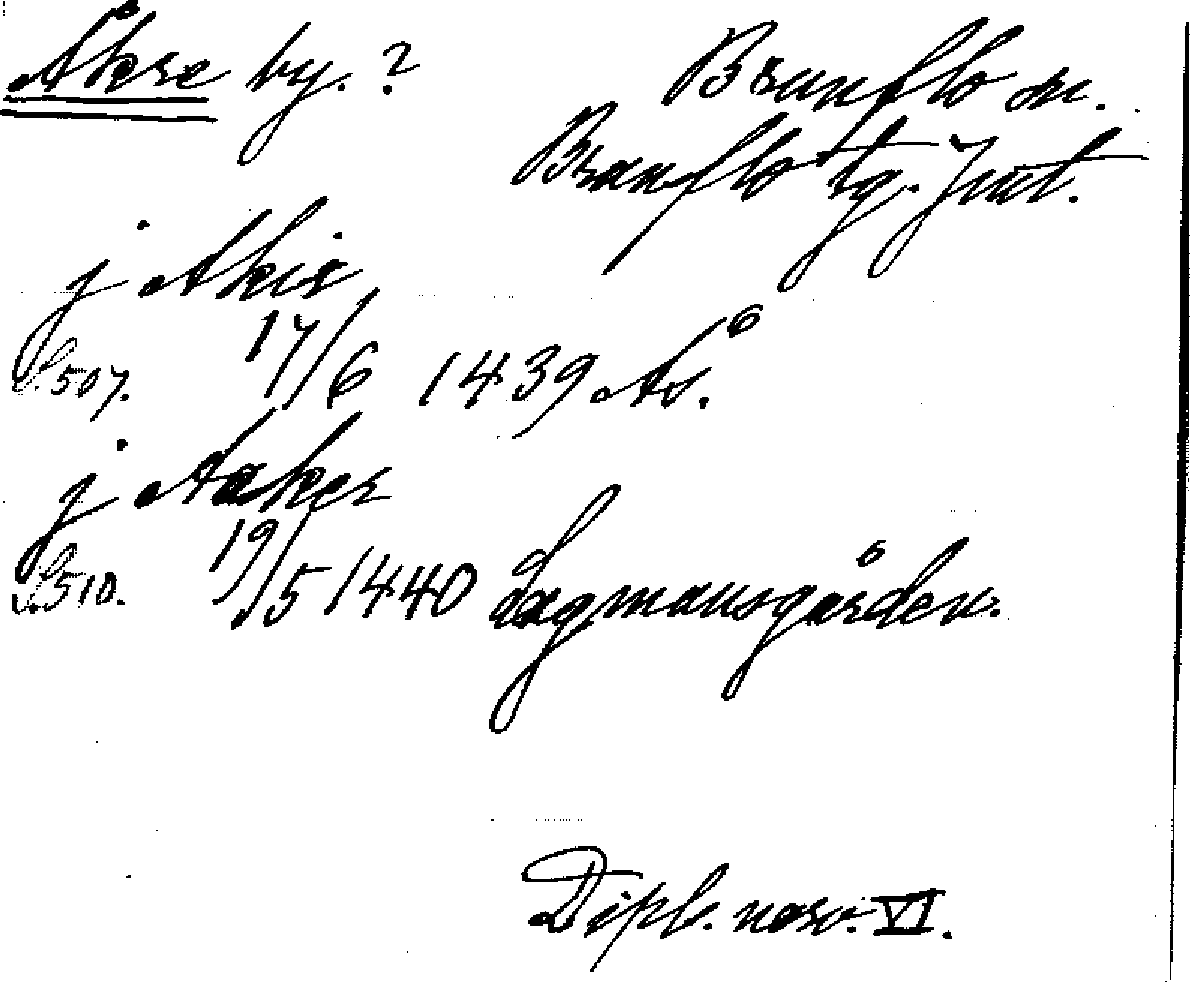 Åkre by. ?
Brunflo sn.
Brunflo tg. Jmt.
j Akir
S. 507. 17/6 1439 Ås.
j Aaker
S. 510. 19/5 1440 Lagmansgården.
Dipl. norv. VI.